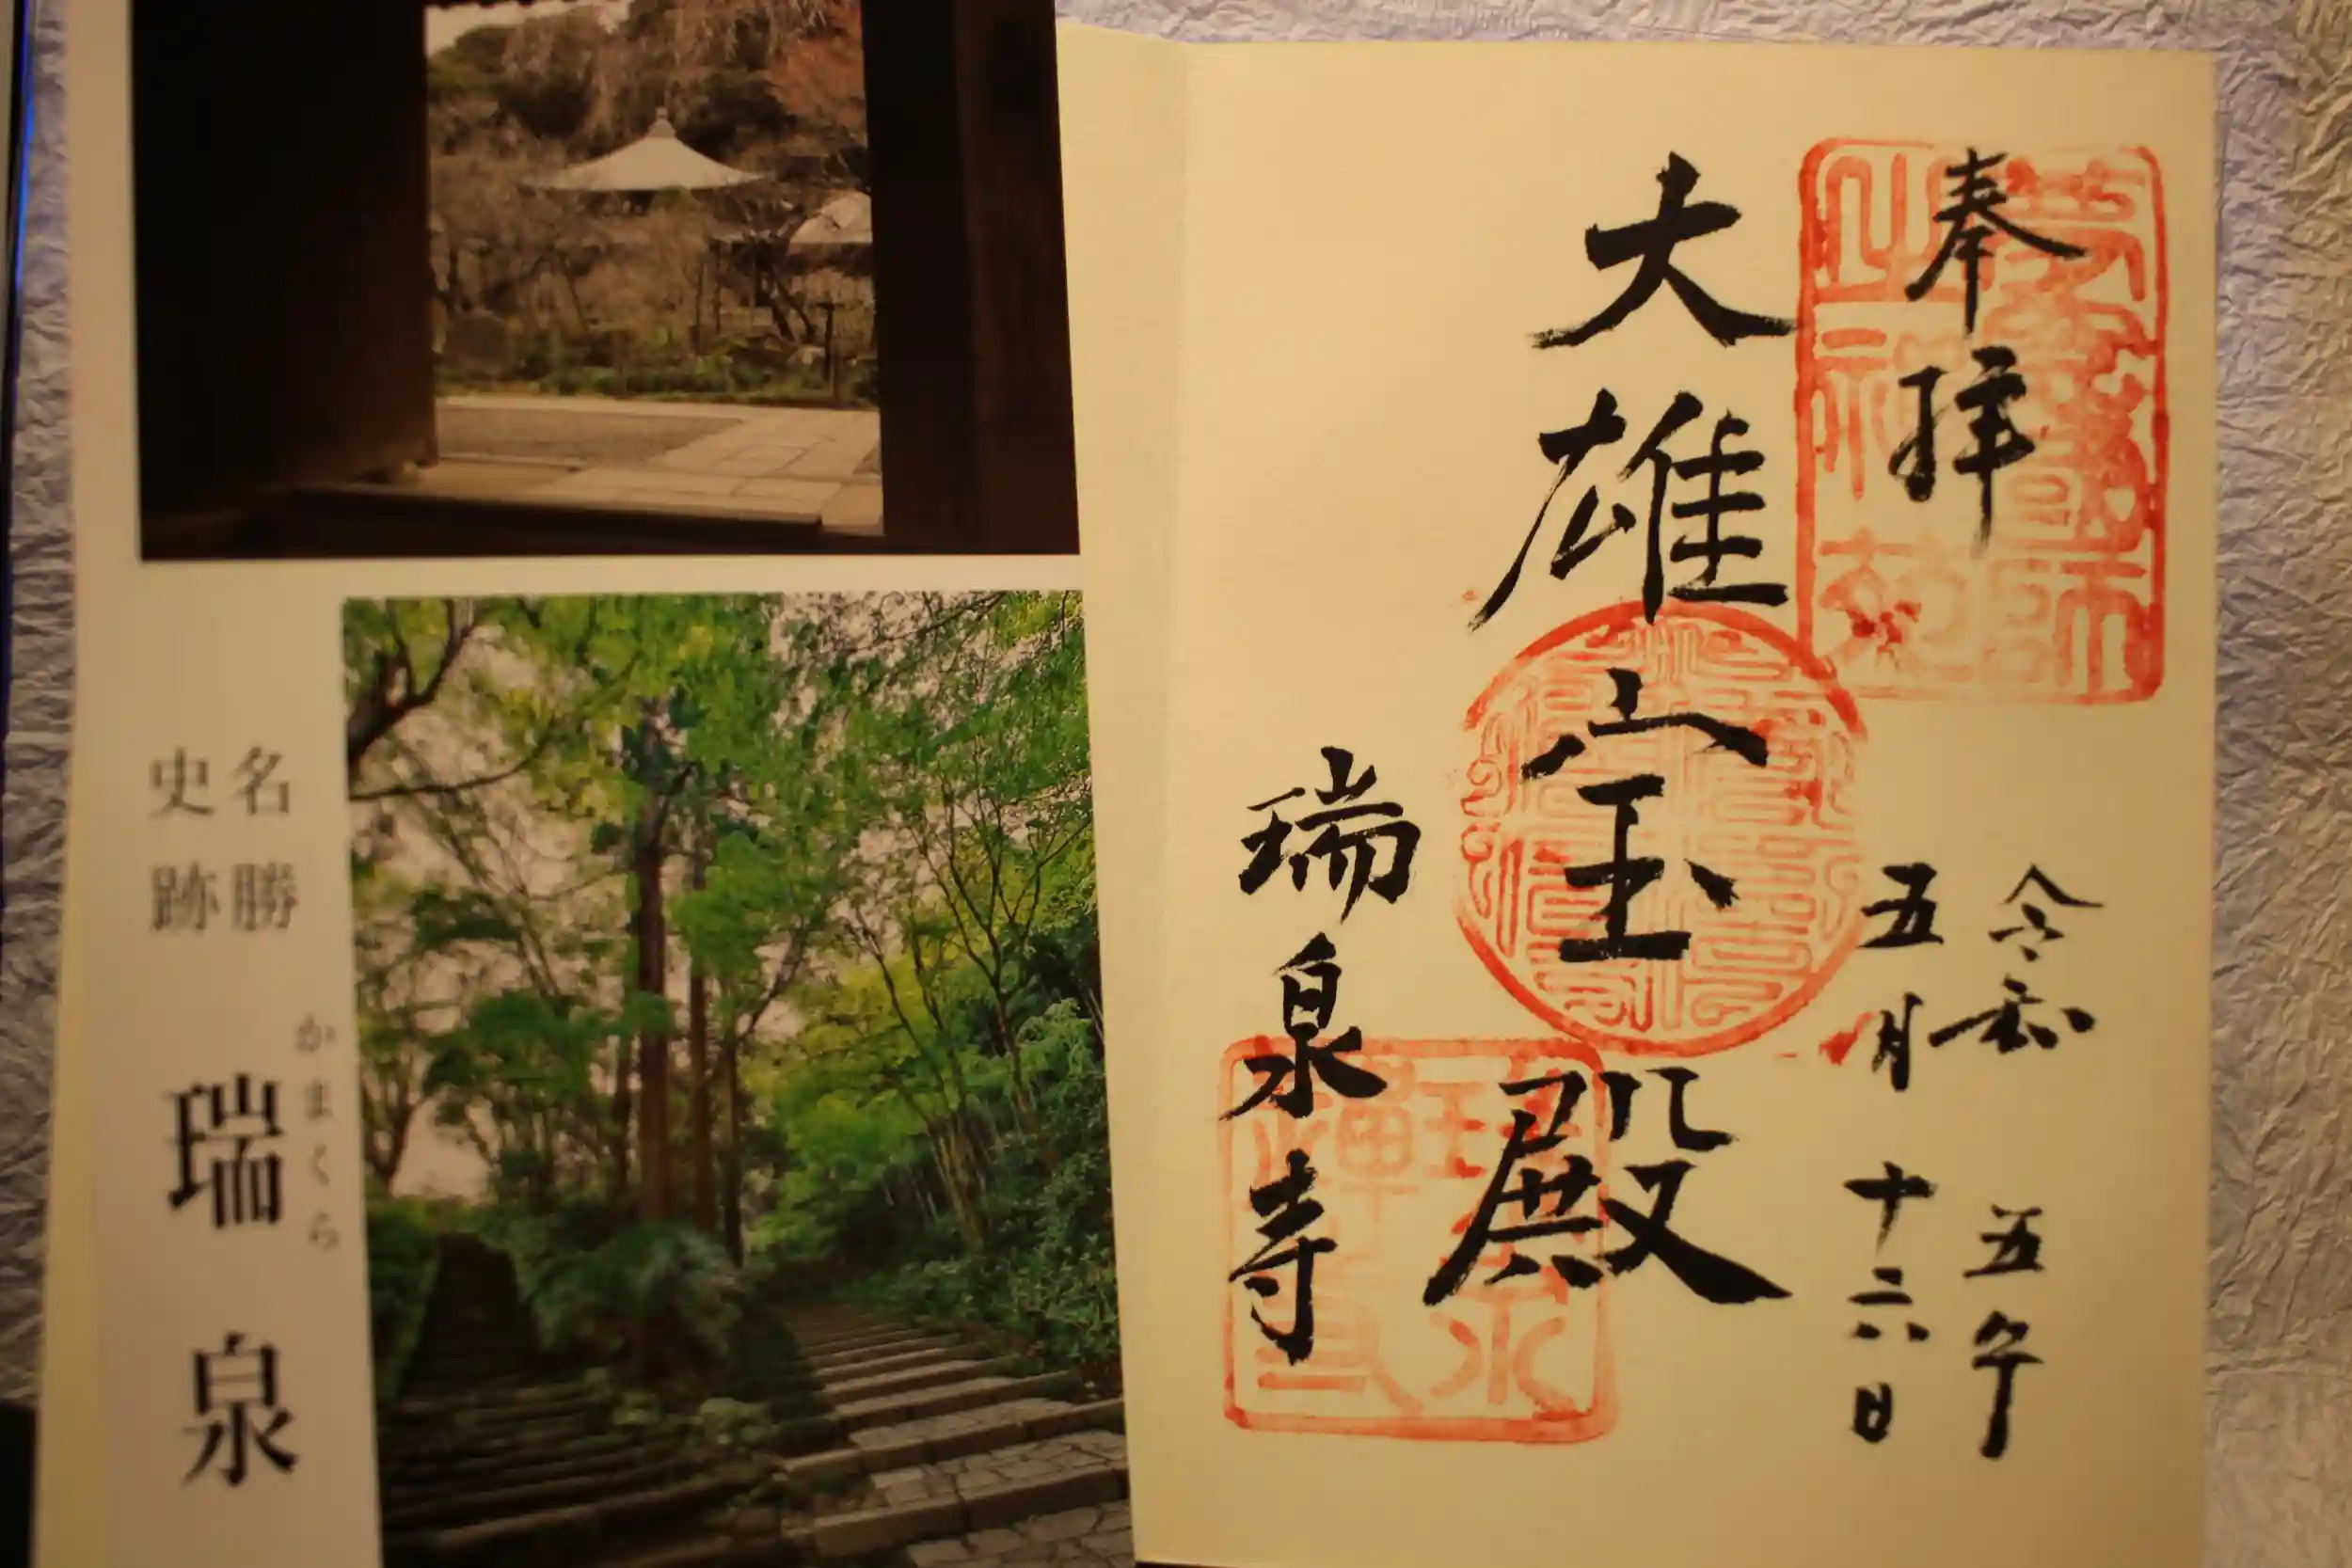 名勝
史跡
かまくら
瑞泉
奉拝
令和五年
五月十六日
大雄宝殿
瑞泉寺
瑞泉
禪寺